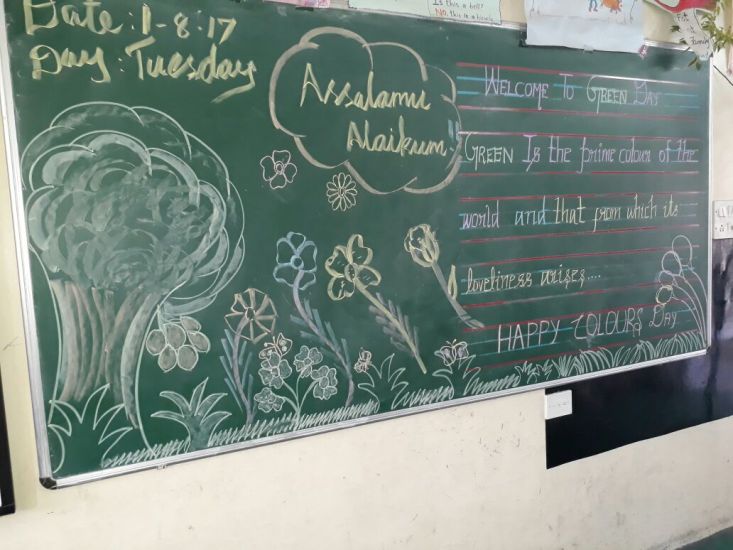 Is this a bell?
NO, this is a bicycle
Date: 1-8-17
Day: Tuesday
Assalamu
Alaikum!!
WELCOME TO GREEN DAY
GREEN Is the prime colour of the
world and that from which its
loveliness arises....
HAPPY COLOURS DAY